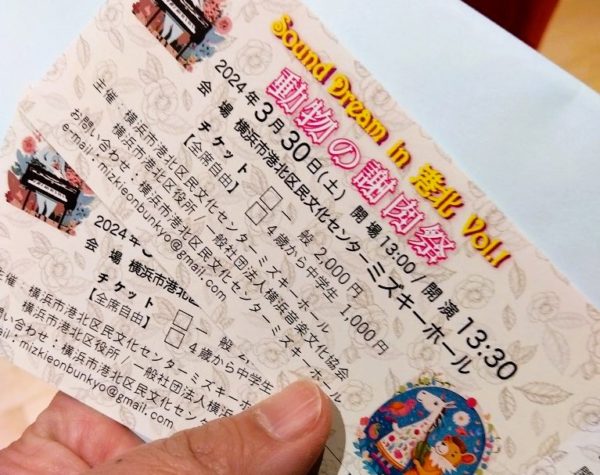 Sound Dream in 港北 Vol.1
動物の謝肉祭
2024年3月30日(土) 開場13:00/開演13:30
会場 横浜市港北区民文化センターミズキーホール
チケット □一般 2,000円
【全席自由】 □4歳から中学生 1,000円
主催:横浜市港北区民文化センターミズキーホール
横浜市港北区役所/一般社団法人横浜音楽文化協会
お問い合わせ:横浜市港北区民文化センターミズキーホール
e-mail:mizkieonbunkyo@gmail.com
2024年
会場 横浜市港北
チケット □一般
【全席自由】 □4歳から中学生
主催:横浜市港北区民文化センターミズキーホール
横浜市港北区役所/一般社団法人横浜
お問い合わせ:横浜市港北区民文化センター
e-mail:mizkieonbunkyo@gmail.com